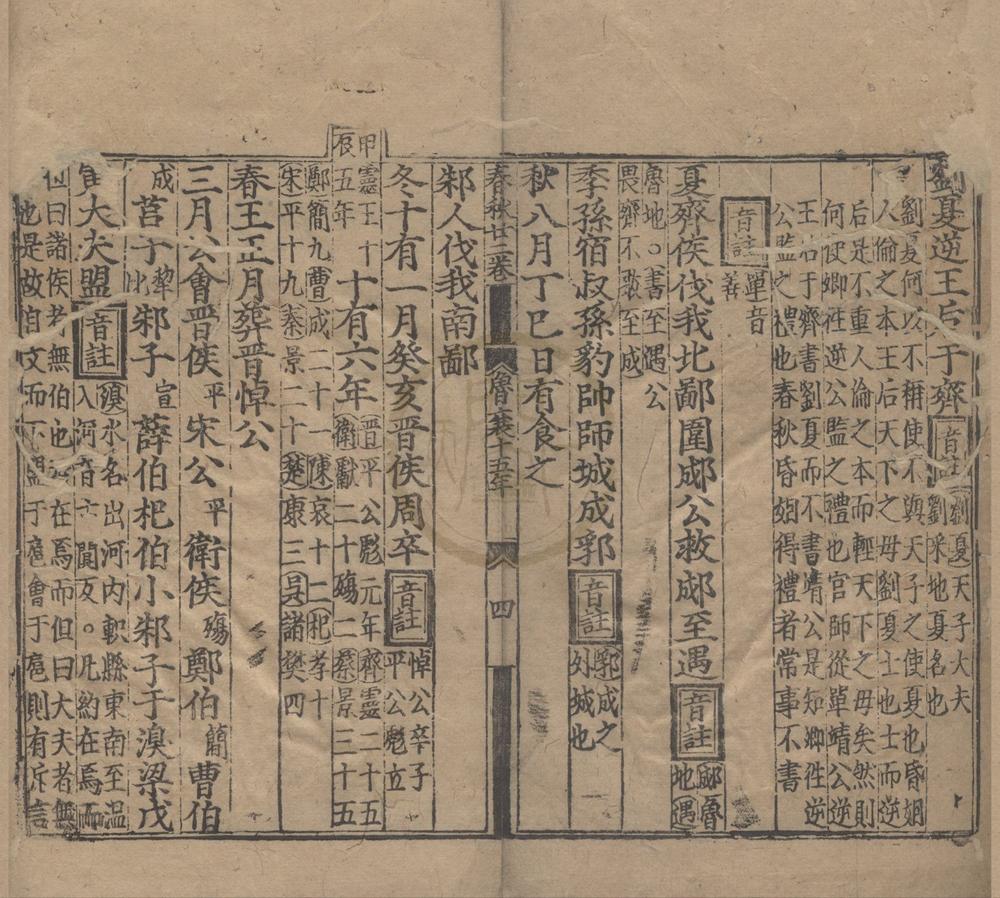 劉夏逆王后于齊音註劉夏天子大夫劉采地夏名也
劉夏何以不稱使不與天子之使夏也昏姻
人倫之本王后天下之母劉夏士也士而逆
后是不重人倫之本而輕天下之母矣然則
何使卿往逆公監之禮也官師從單靖公逆
王后于齊書劉夏而不書靖公是知卿往逆
公監之禮也春秋昏姻得禮者常事不書
音註單音善
夏齊侯伐我北鄙圍成公救成至遇音註郕魯地遇
魯地。書至遇公畏齊不敢至成
季孫宿叔孫豹帥師城成郛音註郛成之外城也
秋八月丁巳日有食之
春秋廿二卷 魯襄十五年 四
邾人伐我南鄙
冬十有一月癸亥晉侯周卒音註悼公卒子平公彪立
甲辰
靈王十五年十有六年晉平公彪元年齊靈二十五衛獻二十殤二蔡景三十五
鄭簡九曹成二十一陳哀十二杞孝十宋平十九秦景二十楚康三吳諸樊四
春王正月葬晉悼公
三月公會晉侯平宋公平衛侯殤鄭伯簡曹伯
成莒子犂比邾子宣薛伯杞伯小邾子于溴梁戊
寅大夫盟音註溴水名出河內軹縣東南至溫入河音古闃反。凡約在焉而
但曰諸侯者無伯也在焉而但曰大夫者無
也是故自文而下盟于扈會于扈則有斥言